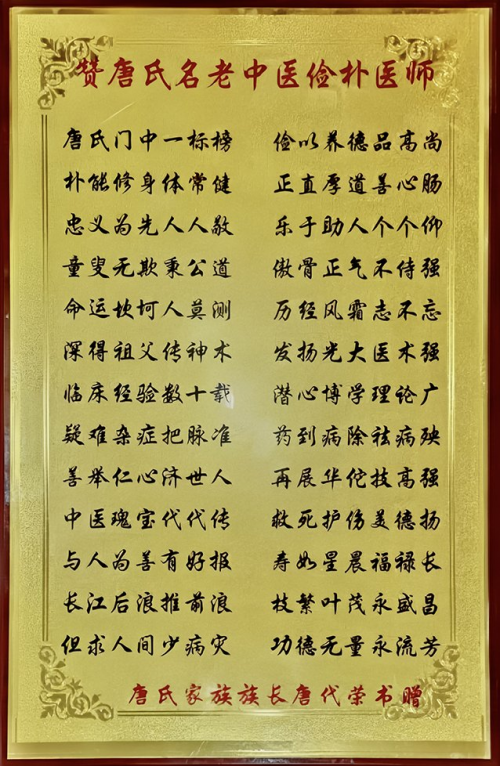 赞唐氏名老中医俭朴医师
唐氏门中一标榜 俭以养德品高尚
朴能修身体常健 正直厚道善心肠
忠义为先人人敬 乐于助人个个仰
童叟无欺秉公道 傲骨正气不侍强
命运坎坷人莫测 历经风霜志不忘
深得祖父传神术 发扬光大医术强
临床经验数十载 潜心博学理论广
疑难杂症把脉准 药到病除祛病殃
善举仁心济世人 再展华佗技高强
中医瑰宝代代传 救死护伤美德扬
与人为善有好报 寿如星晨福禄长
长江后浪推前浪 枝繁叶茂永盛昌
但求人间少病灾 功德无量永流芳
唐氏家族族长唐代荣书赠